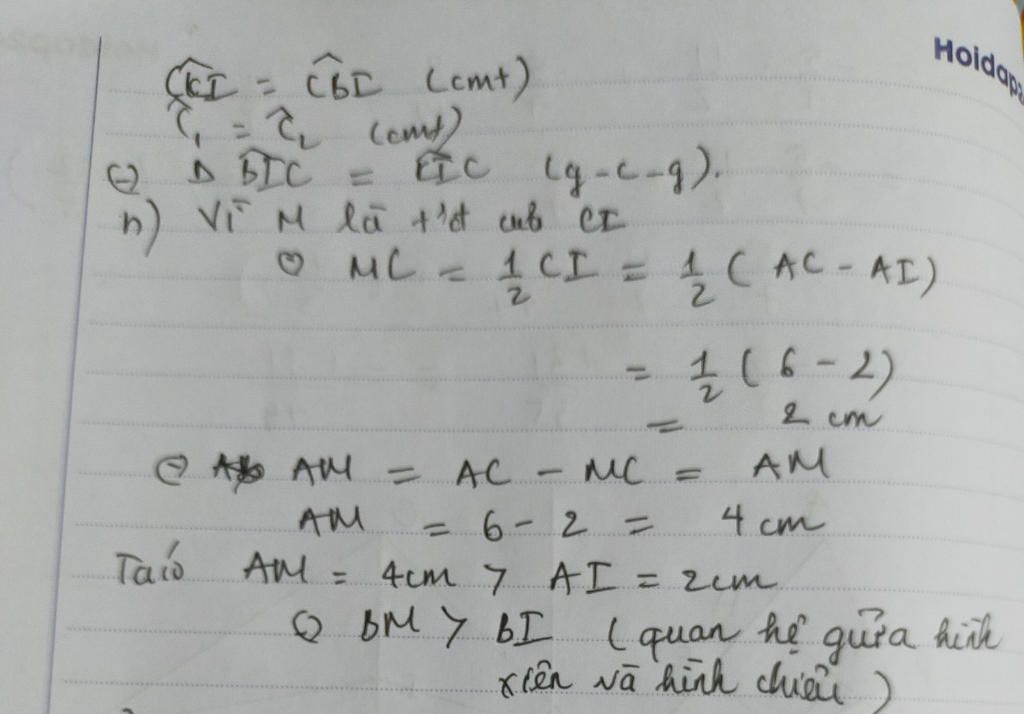 Hoidap2
CKI = CBI (cmt)
C₁ = C₂ (cmt)
⊖ Δ BIC = KIC (g-c-g).
n) Vì M là t'đ của CI
⊖ MC = 1/2 CI = 1/2 ( AC - AI )
= 1/2 ( 6 - 2 )
= 2 cm
⊖ AM = AC - MC = AM
AM = 6 - 2 = 4 cm
Ta có AM = 4cm > AI = 2cm
⊖ BM > BI ( quan hệ giữa hình
xiên và hình chiếu )